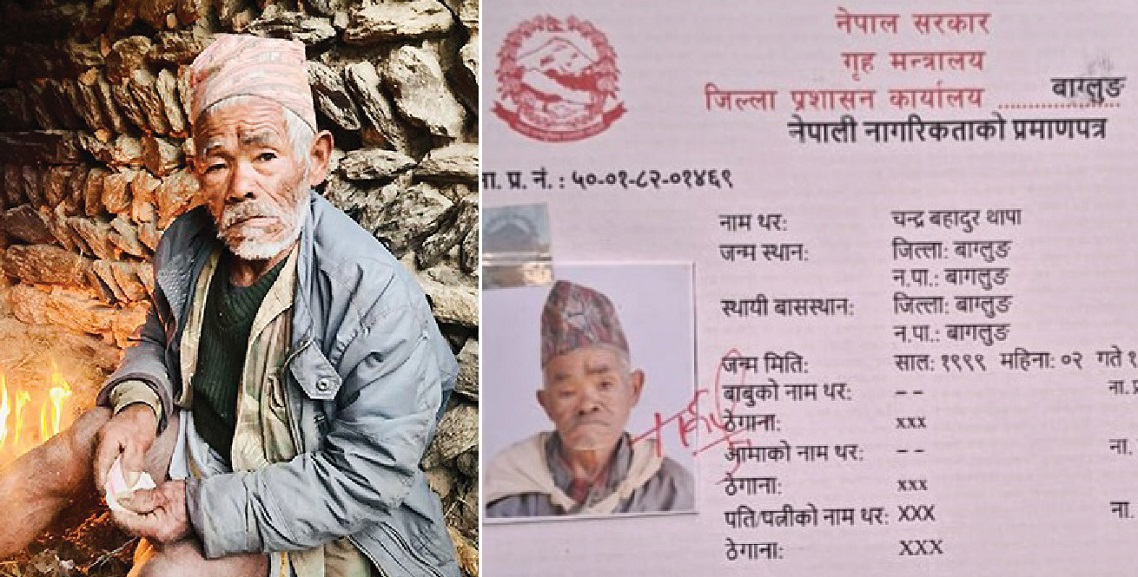 नेपाल सरकार
गृह मन्त्रालय
जिल्ला प्रशासन कार्यालय ........................ बाग्लुङ
नेपाली नागरिकताको प्रमाणपत्र
ना. प्र. नं. : ५०-०१-८२-०१४६९
नाम थर: चन्द्र बहादुर थापा
जन्म स्थान: जिल्ला: बाग्लुङ
न.पा.: बागलुङ
स्थायी बासस्थान: जिल्ला: बाग्लुङ
न.पा.: बागलुङ
जन्म मिति: साल: १९९९ महिना: ०२ गते १
बाबुको नाम थर: -- ना.प्र
ठेगाना: xxx
आमाको नाम थर: -- ना.
ठेगाना: xxx
पति/पत्नीको नाम थर: XXX ना.
ठेगाना: XXX